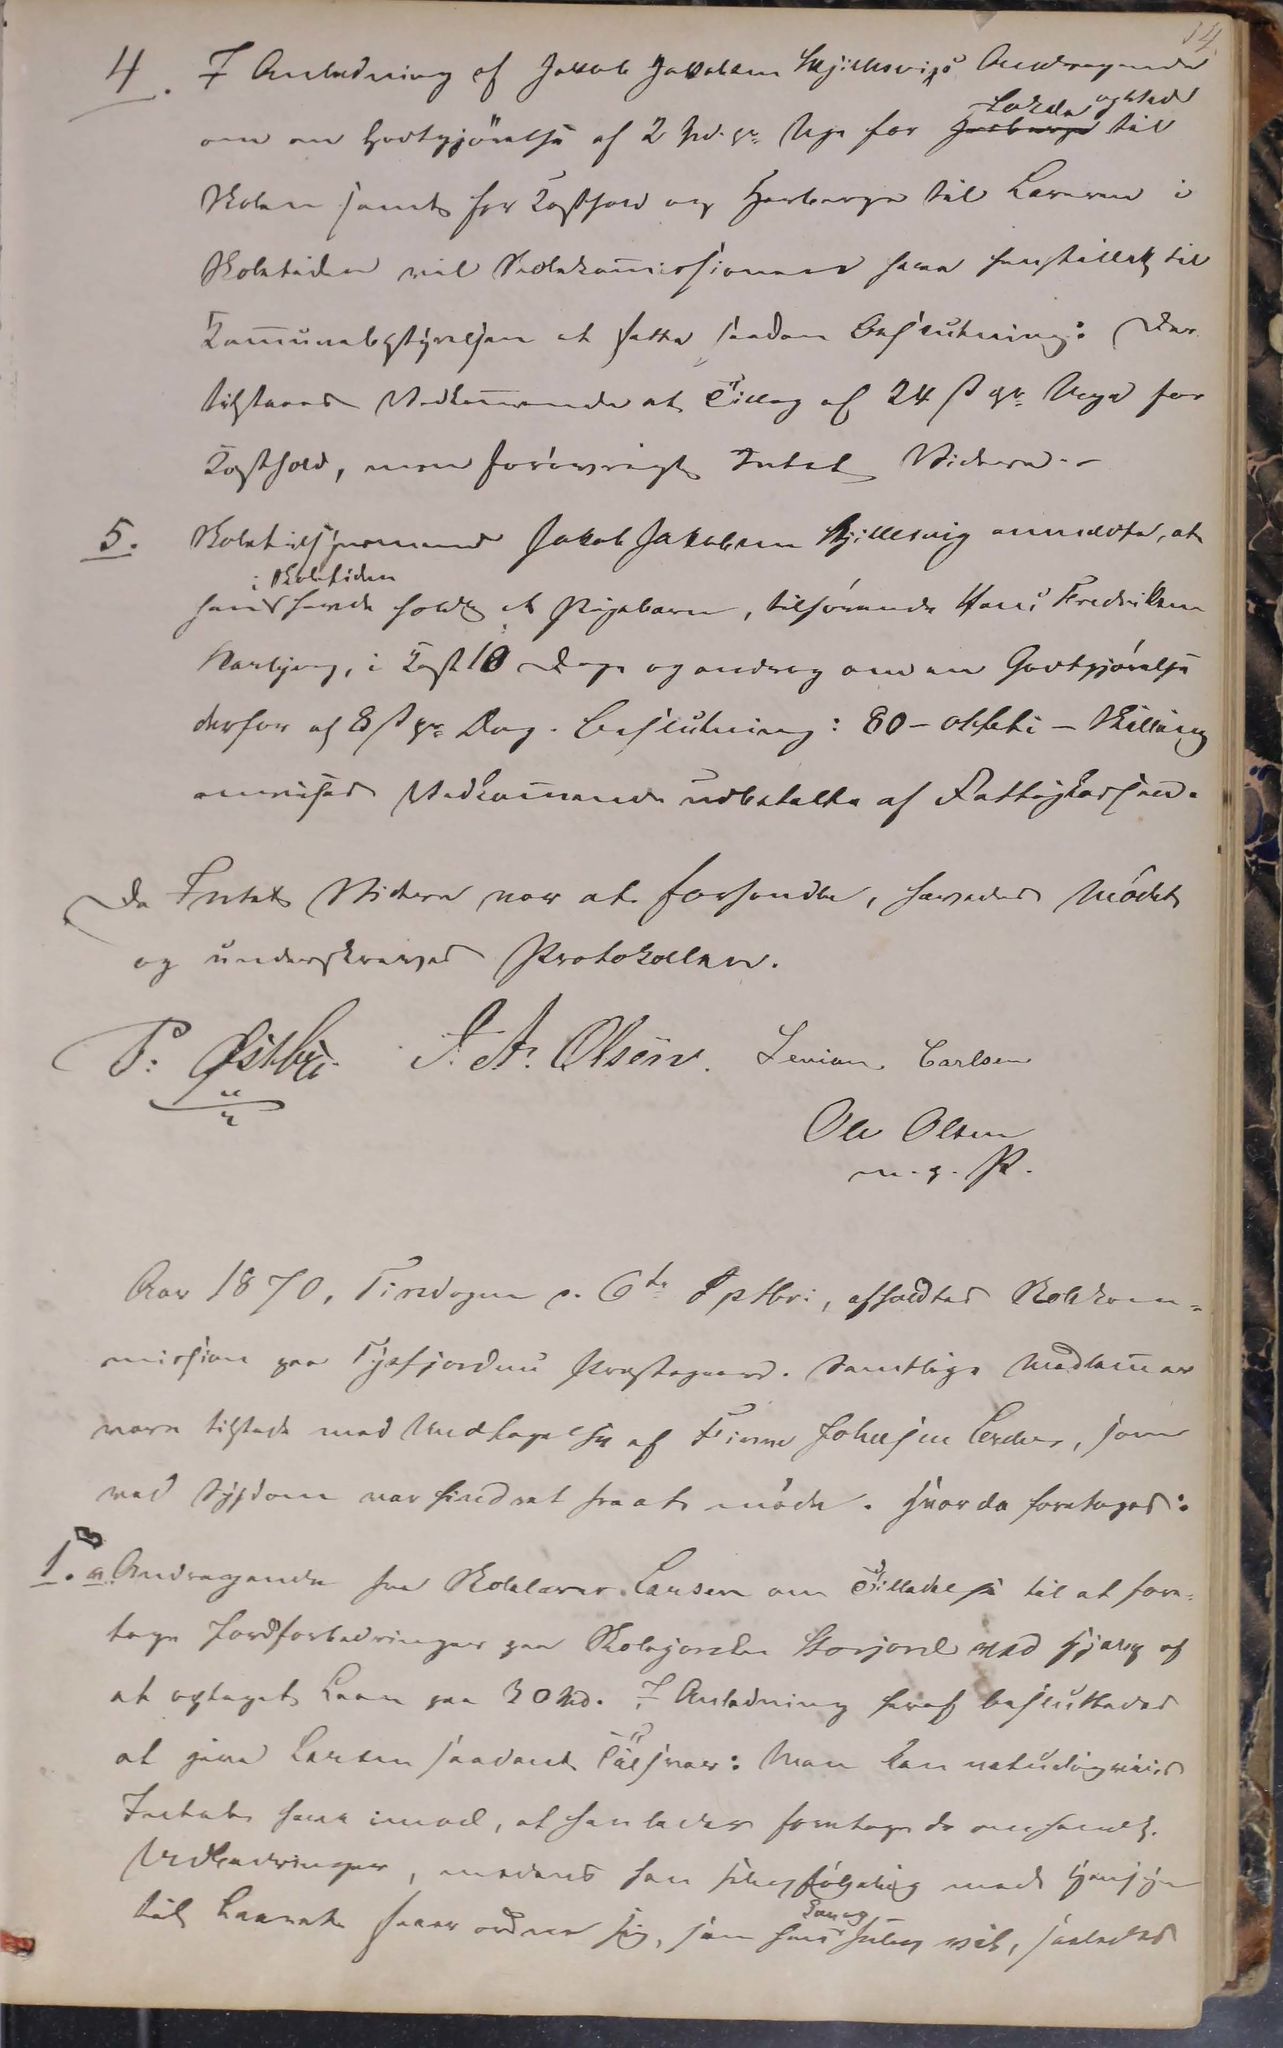 14.
4. I Anledning af Jakob Jakobsen Skjellesvigs Andragende
om en Godtgjörelse af 2 Spd. pr. Uge for Herberge Lokale og Sted til
Skolen samt for Kosthold og Herberge til Læreren i
Skoletiden vil Skolekommissionen have henstillet til
Kommunebestyrelsen at fatte saadan Beslutning: Der
tilstaaes Vedkommende et Tillæg af 24 ß pr. Uge for
Kosthold, men forövrigt Intet Videre.
5. Skoletilsynsmand Jakob Jakobsen Skjellesvig anmeldte, at
i Skoletiden
han havde holdt et Pigebarn, tilhörende Hans Fredriksen
Korsjorg, i Kost 10 Dage og androg om en Godtgjörelse
derfor af 8 ß pr. Dag. Beslutning: 80 - otteti - Skilling
anvises Vedkommende udbetalte af Fattigkassen.
Da Intet Videre var at forhandle, hævedes Mödet
og underskreves Protokollen.
P. Østbye. J. A. Olsen. Zenian Carlsen
Ole Olsen
m. p. P.
Aar 1870, Tirsdagen d. 6te Septbr:, afholdtes Skolekom=
mission paa Tysfjordens Præstegaard. Samtlige Medlemmer
vare tilstede med Undtagelse af Finne Johnsen, som
ved Sygdom var hindret fra at möde. Hvorda foretoges:
1. a. Andragende fra Skolelærer Larsen om Tilladelse til at fore=
tage Jordforbedringer paa Skolejorden Storjord ved Hjælp af
et optaget Laan paa 30 Spd. I Anledning heraf besluttedes
at give Larsen saadant Tilsvar: Man kan naturligviis
Intet have imod, at han lader foretage de omhandl.
Udbedringer, medens han selvfölgelig med Hensyn
til Laanet faaer ordne sig, som han Kan og selv vil, saaledes